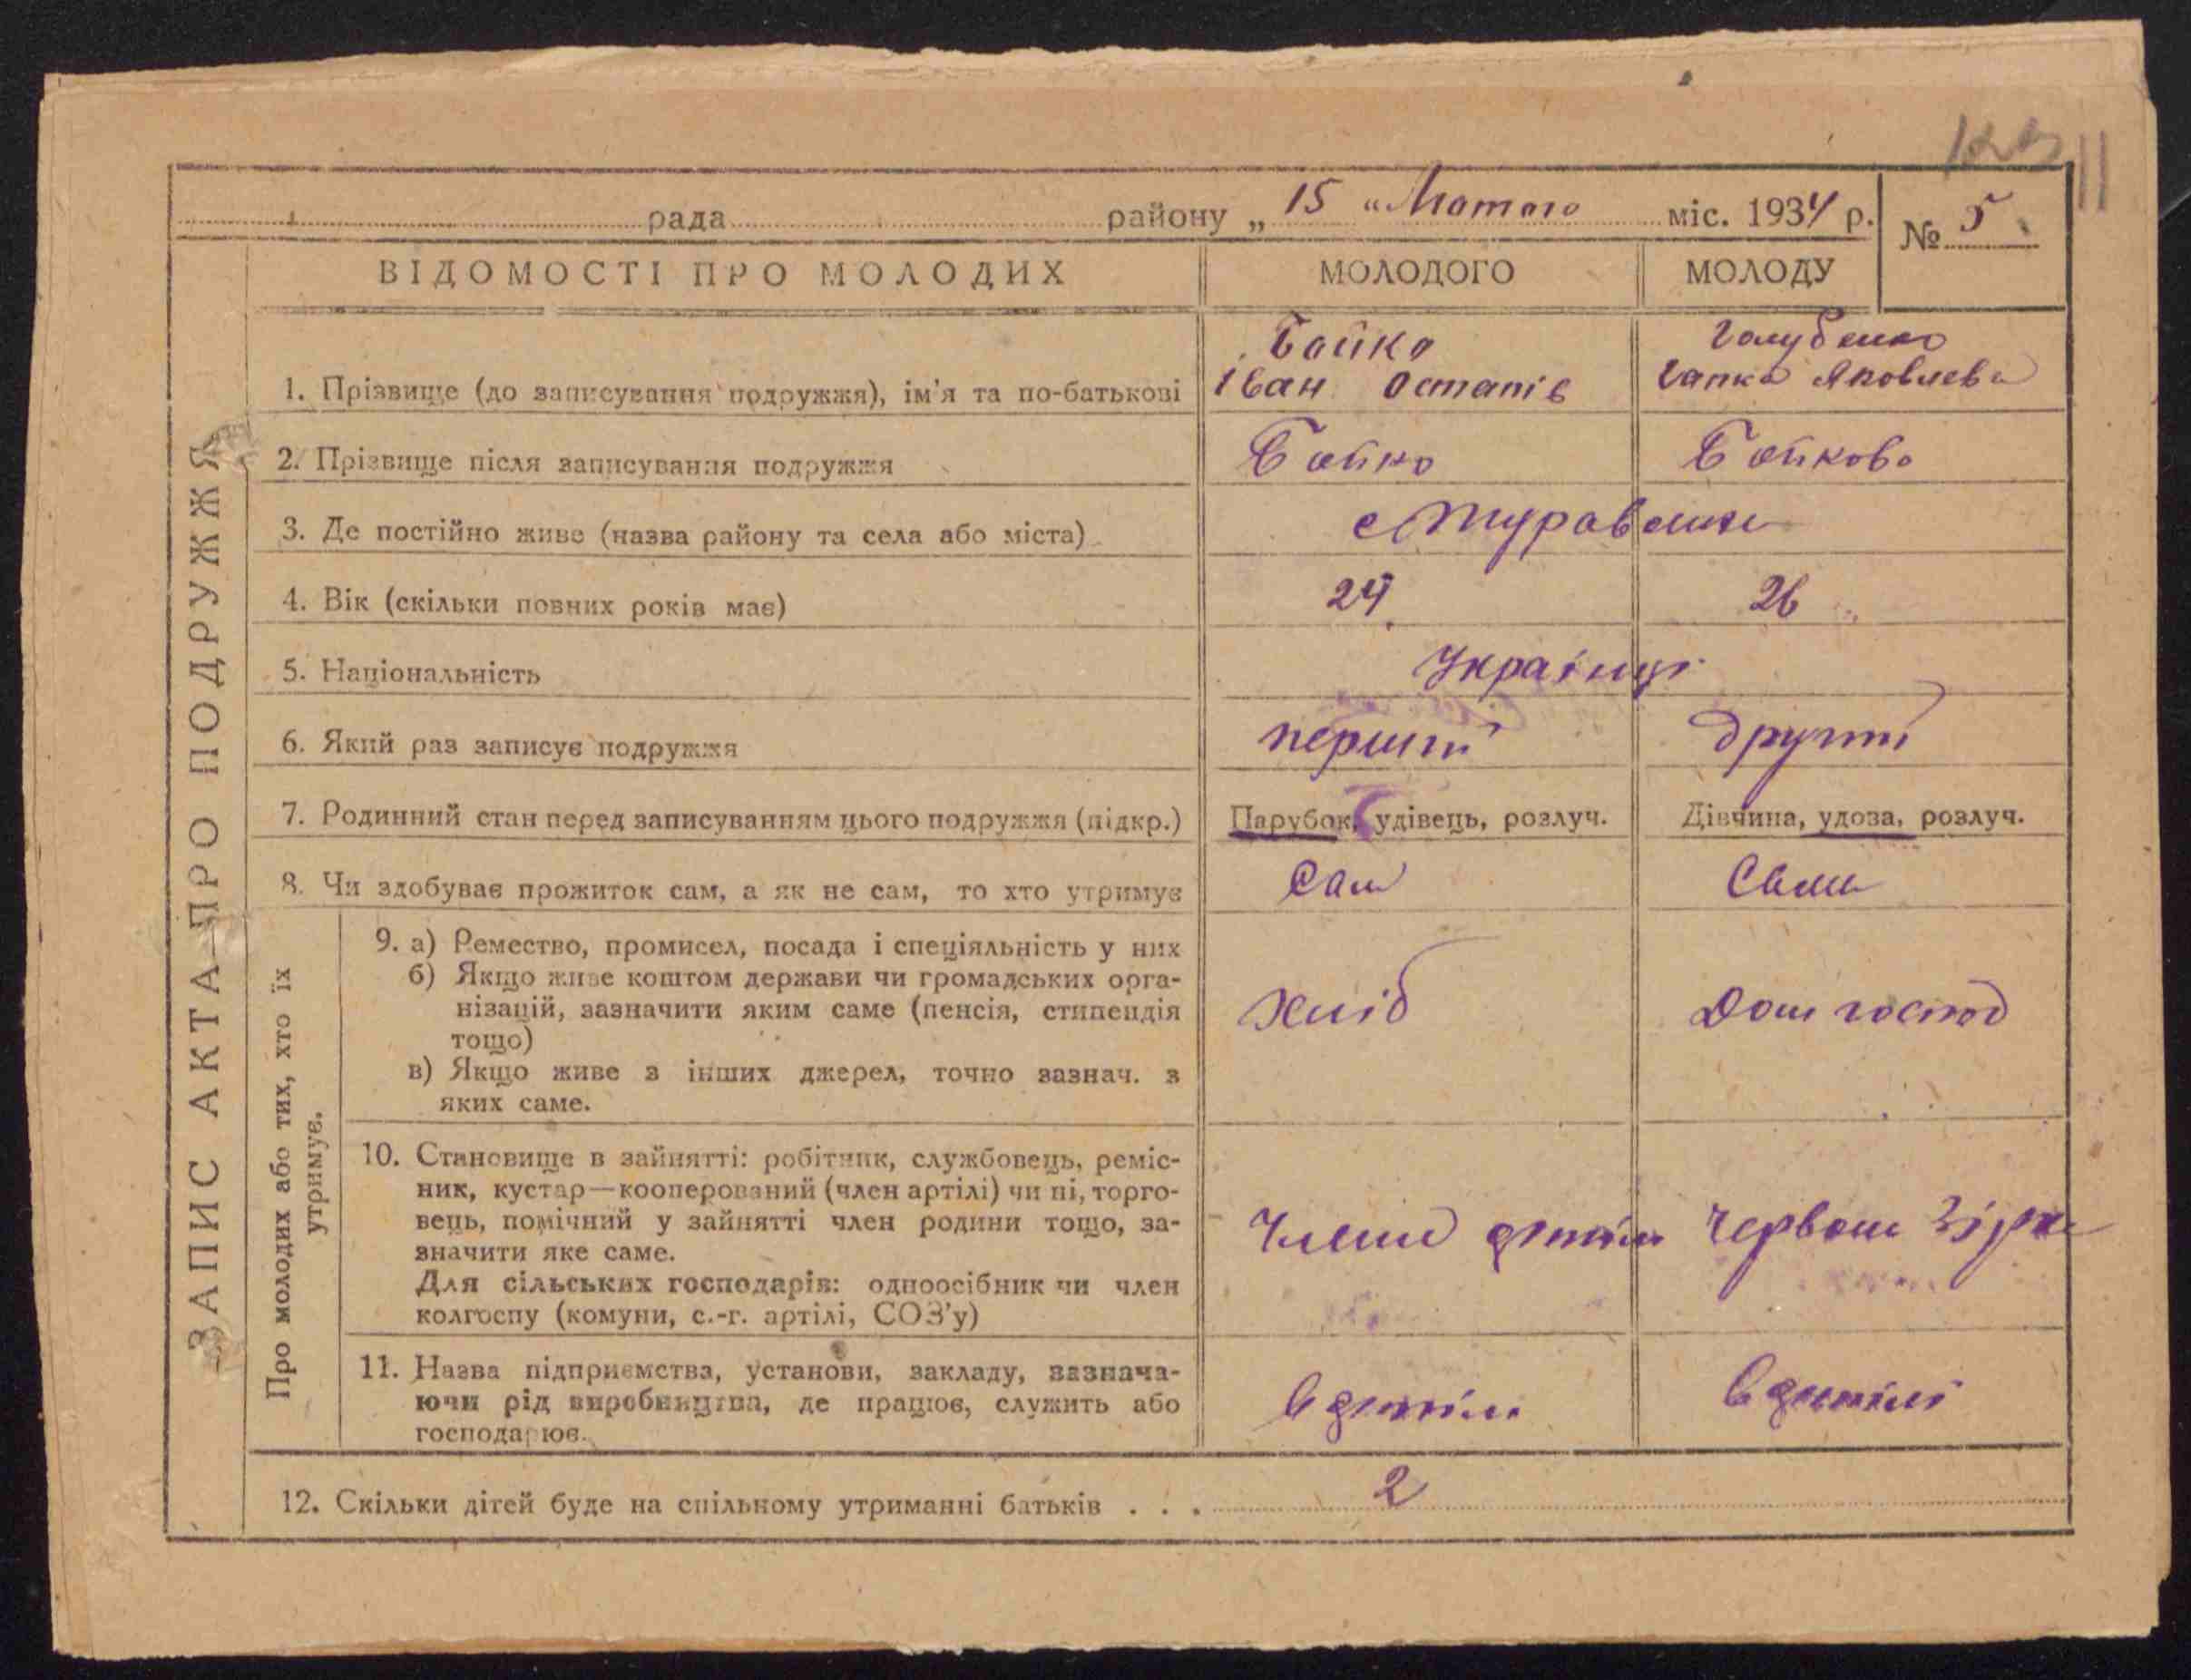 рада району „ 15 “ Лютого міс. 1934 р.
№ 5
ВІДОМОСТІ ПРО МОЛОДИХ
МОЛОДОГО
МОЛОДУ
ЗАПИС АКТА ПРО ПОДРУЖЖЯ
1. Прізвище (до записування подружжя), ім'я та по-батькові
Бойко
Іван Остапів
Голубенко
Гапка Яковлева
2. Прізвище після записування подружжя
Бойко
Бойкова
3. Де постійно живе (назва району та села або міста)
с Муравейка
4. Вік (скільки повних років має)
24
26
5. Національність
Українці
6. Який раз записує подружжя
перший
другий
7. Родинний стан перед записуванням цього подружжя (підкр.)
Парубок, удівець, розлуч.
Дівчина, удова, розлуч.
8. Чи здобуває прожиток сам, а як не сам, то хто утримує
Сам
Сама
Про молодих або тих, хто їх
утримує.
9. а) Ремество, промисел, посада і спеціяльність у них
б) Якщо живе коштом держави чи громадських орга-
нізацій, зазначити яким саме (пенсія, стипендія
тощо)
в) Якщо живе з інших джерел, точно зазнач. з
яких саме.
Хліб
Дом господ
10. Становище в зайнятті: робітник, службовець, реміс-
ник, кустар—кооперований (член артілі) чи ні, торго-
вець, помічний у зайнятті член родини тощо, за-
значити яке саме.
Для сільських господарів: одноосібник чи член
колгоспу (комуни, с.-г. артілі, СОЗ'у)
Члени артіли Червона Зірка
11. Назва підприємства, установи, закладу, зазнача-
ючи рід виробництва, де працює, служить або
господарює.
В артілі
В артілі
12. Скільки дітей буде на спільному утриманні батьків . . . 2